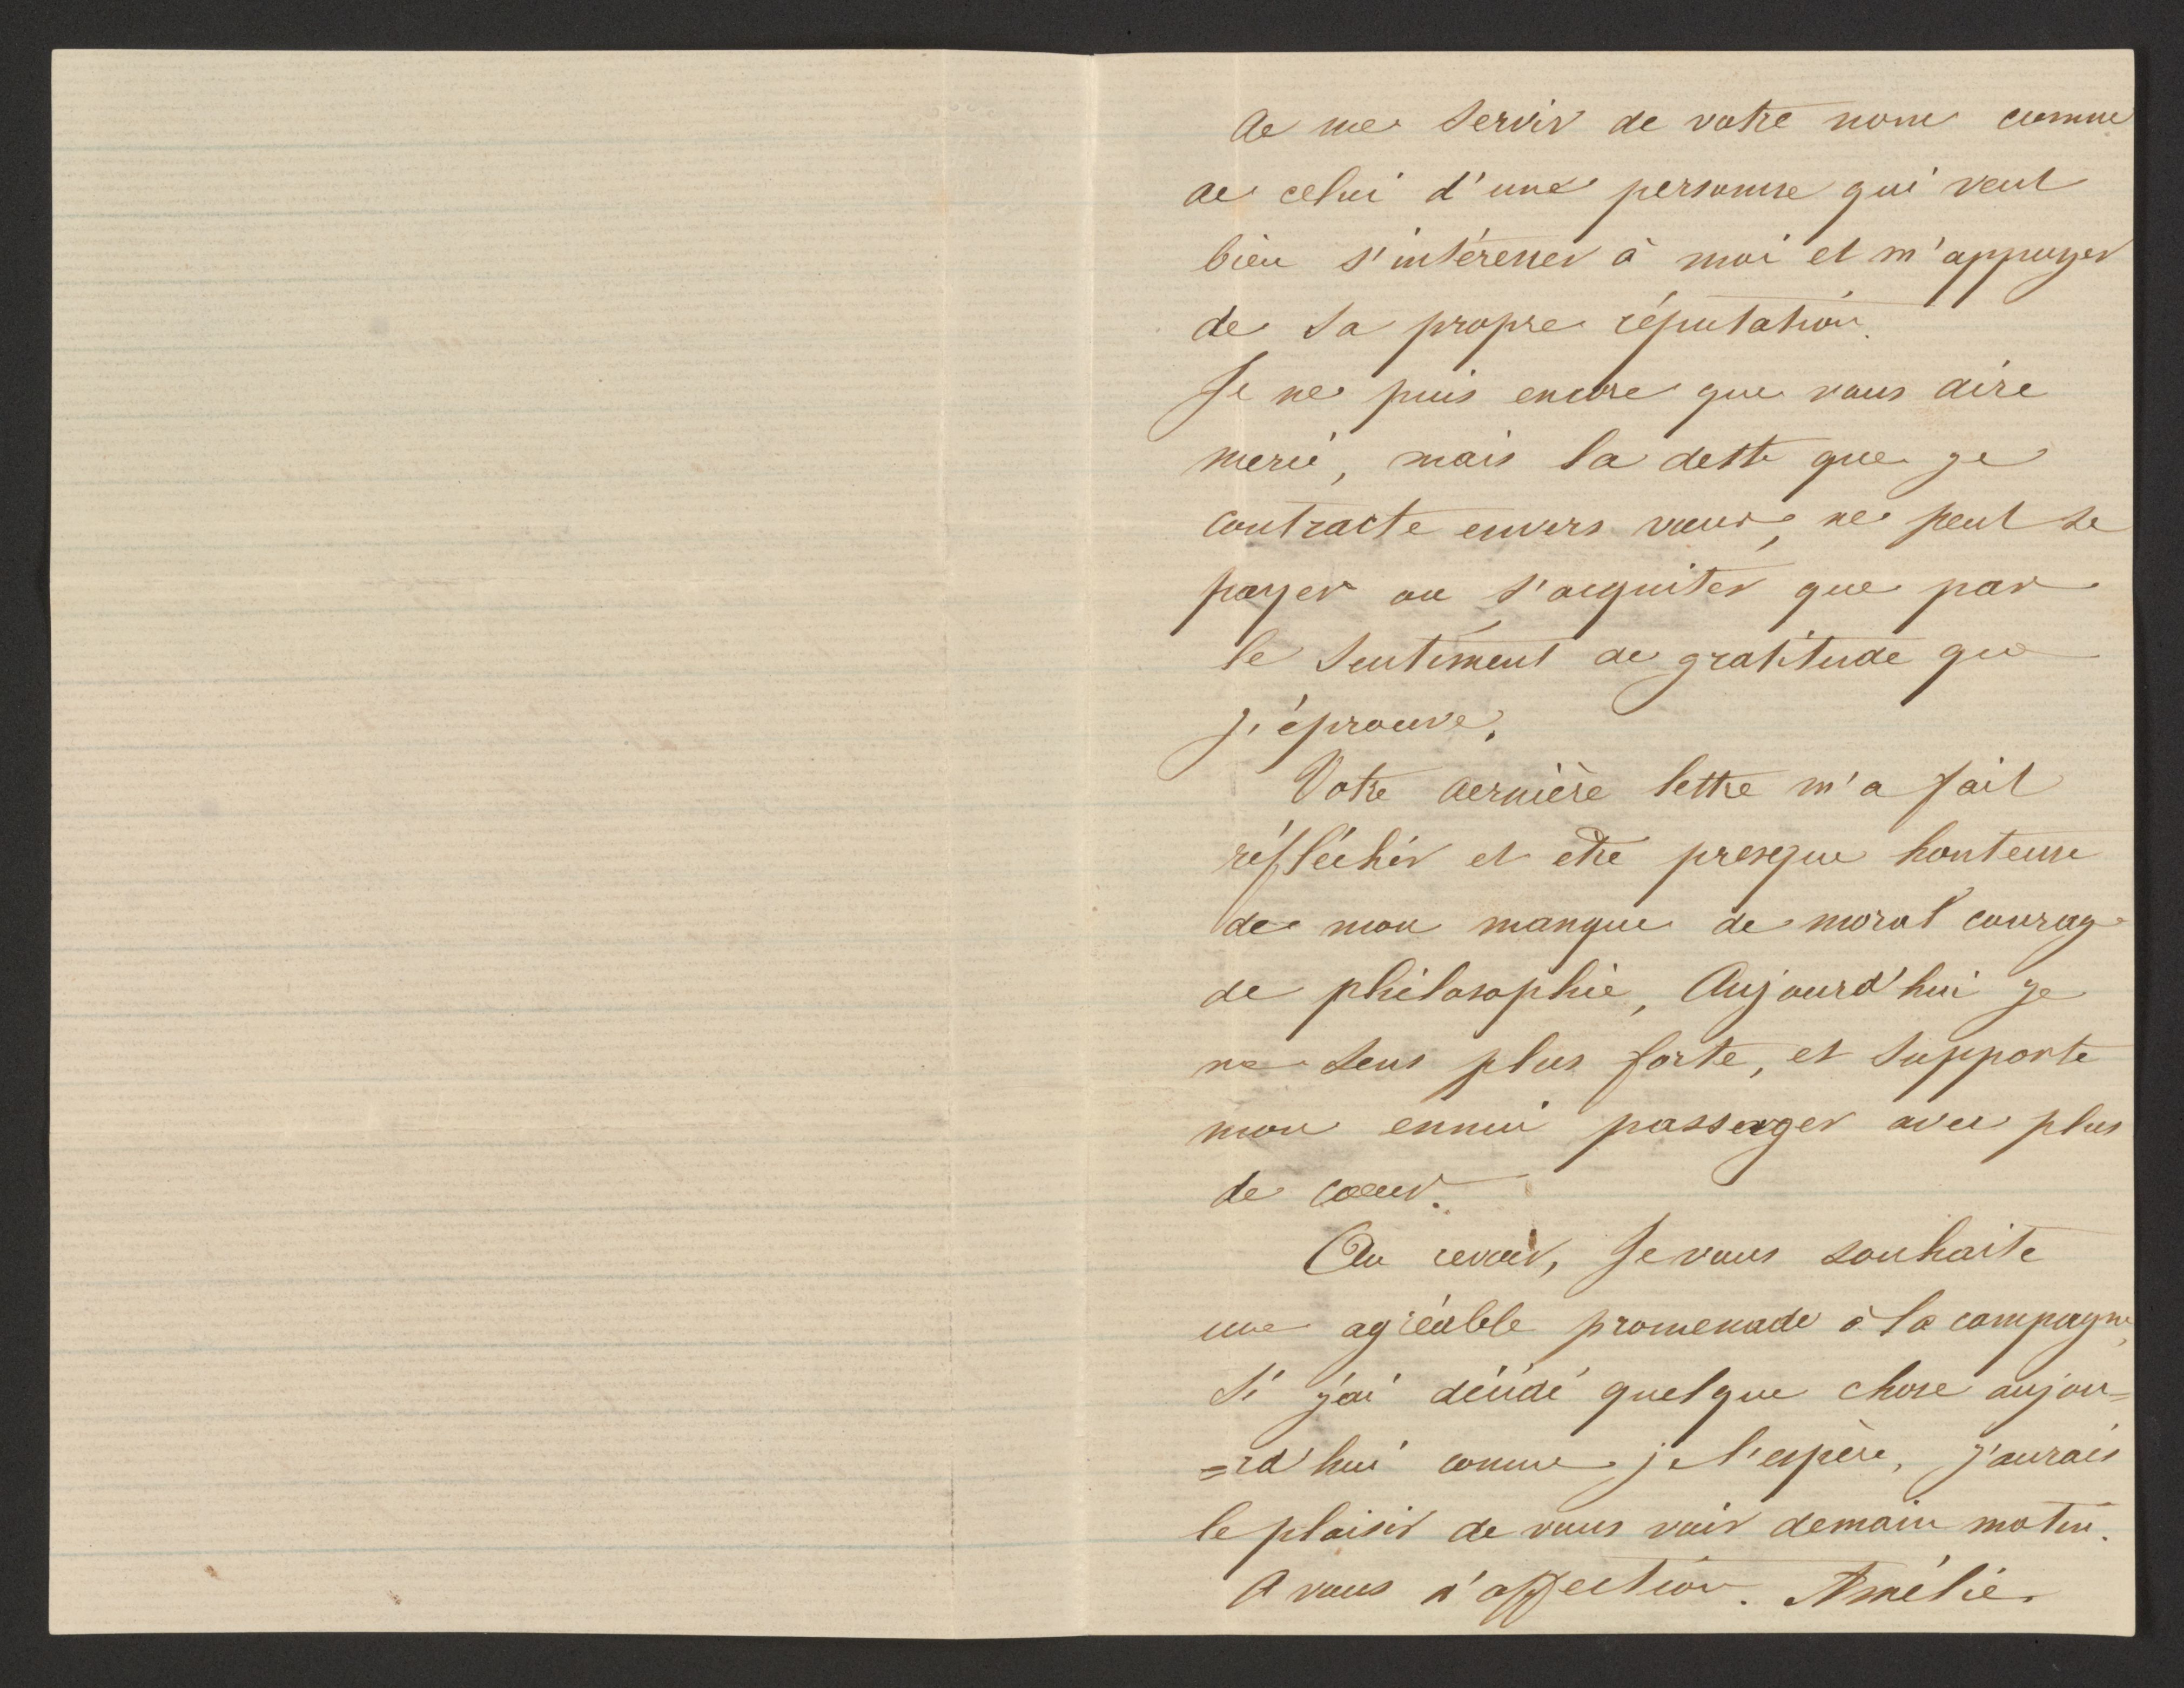 de me servir de votre nom comme
de celui d'une personne qui veut
bien s'intéresser à moi et m'appuyer
de sa propre réputation.
Je ne puis encore que vous dire
merci, mais la dette que je
contracte envers vous, ne peut se
payer ou s'acquiter que par
le sentiment de gratitude que
j'éprouve.
Votre dernière lettre m'a fait
réfléchir et être presque honteuse
de mon manque de moral courage
de philosophie, Aujourd'hui je
me sens plus forte, et supporte
mon ennui passager avec plus
de coeur.
Au revoir, Je vous souhaite
une agréable promenade à la campagne,
Si j'ai décidé quelque chose aujou=
=rd'hui comme je l'espère, j'aurais
le plaisir de vous voir demain matin.
A vous d'affection. Amélie.